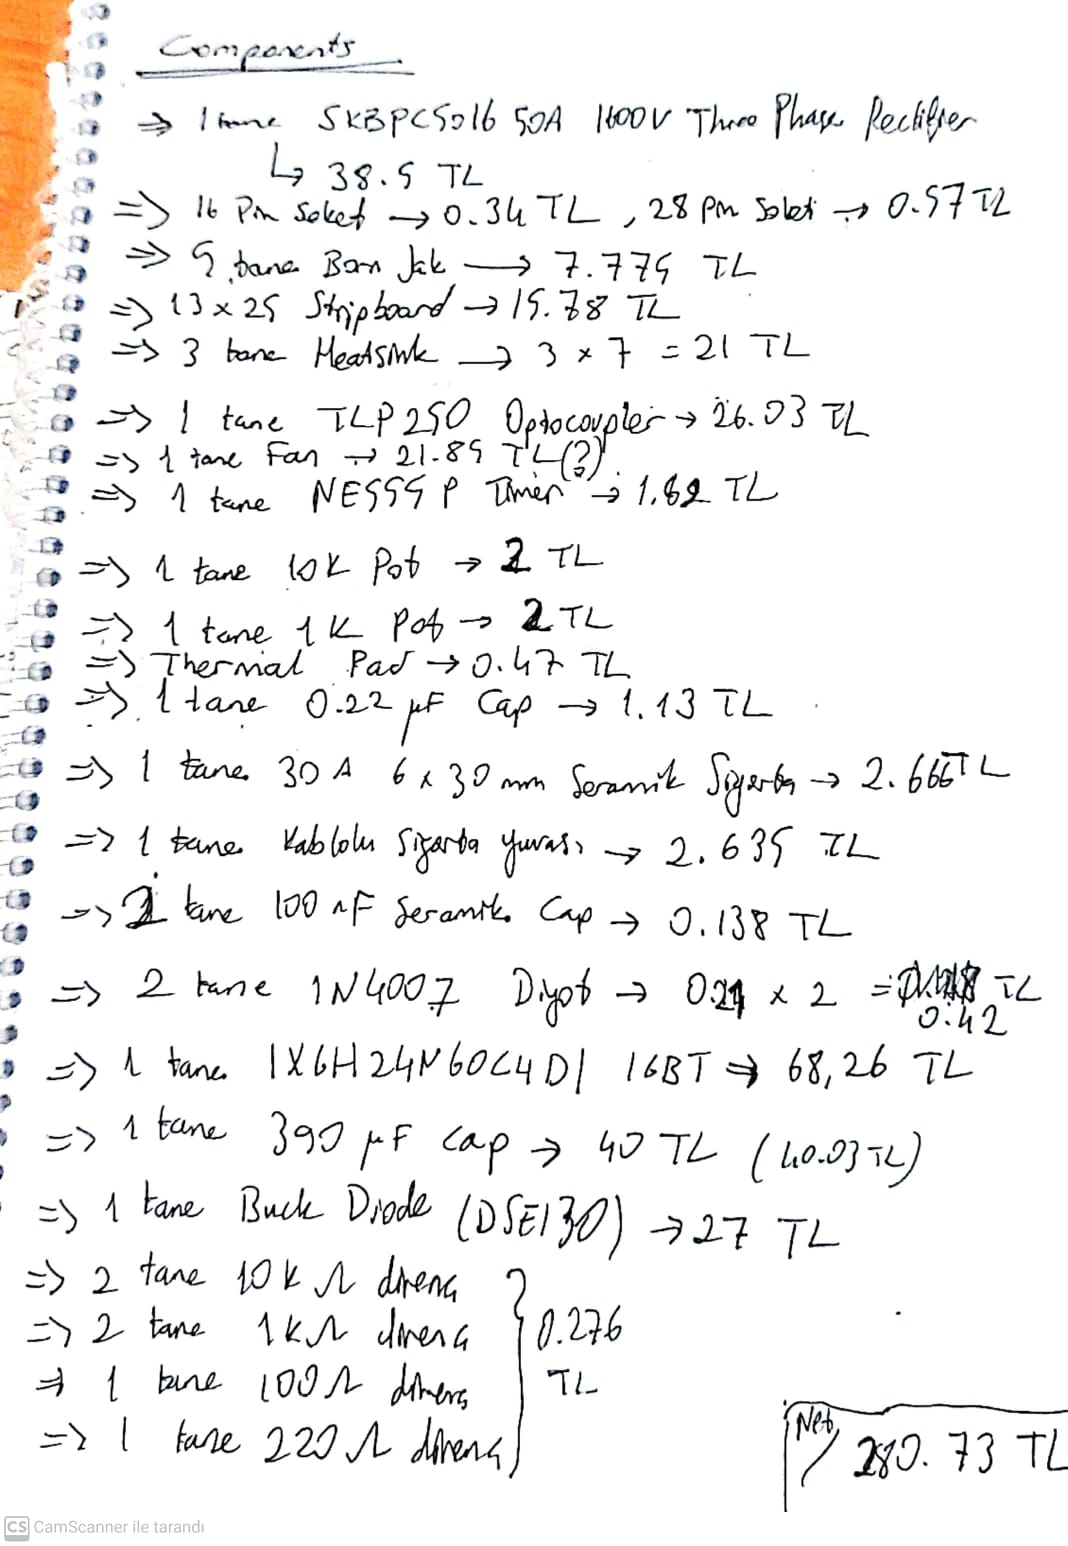 Components
⇒ 1 tane SKBPC5016 50A 1600V Three Phase Rectifier
↳ 38.5 TL
⇒ 16 Pin Soket → 0.34 TL , 28 pin Soket → 0.57 TL
⇒ 5 tane Born Jak → 7.775 TL
⇒ 13 x 25 Stripboard → 15.78 TL
⇒ 3 tane Heatsink → 3 x 7 = 21 TL
⇒ 1 tane TLP250 Optocoupler → 26.03 TL
⇒ 1 tane Fan → 21.85 TL (?)
⇒ 1 tane NE555 P Timer → 1.62 TL
⇒ 1 tane 10K Pot → 2 TL
⇒ 1 tane 1K Pot → 2 TL
⇒ Thermal Pad → 0.47 TL
⇒ 1 tane 0.22 µF Cap → 1.13 TL
⇒ 1 tane 30 A 6 x 30 mm Seramik Sigorta → 2.666 TL
⇒ 1 tane Kablolu Sigorta yuvası → 2.635 TL
⇒ tane 100 nF Seramik Cap → 0.138 TL
⇒ 2 tane 1N4007 Diyot → 0.21 x 2 = TL
0.42
⇒ 1 tane IXGH24N60C4D1 IGBT → 68,26 TL
⇒ 1 tane 390 µF Cap → 40 TL (40.03 TL)
⇒ 1 tane Buck Diode (DSEI30) → 27 TL
⇒ 2 tane 10K Ω direnç
⇒ 2 tane 1KΩ direnç } 0.276
⇒ 1 tane 100Ω direnç TL
⇒ 1 tane 220 Ω direnç
Net
280.73 TL
CS CamScanner ile tarandı